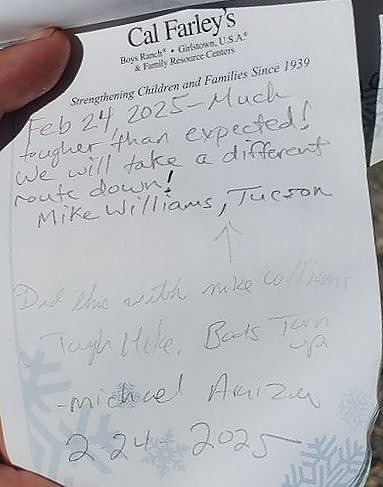 Cal Farley's
Boys Ranch® • Girlstown, U.S.A.®
& Family Resource Centers
Strengthening Children and Families Since 1939
Feb 24, 2025 - Much
tougher than expected!
We will take a different
route down!
Mike Williams, Tucson
Did this with mike williams
Tough Hike. Boots Torn
up
- michael
2-24-2025